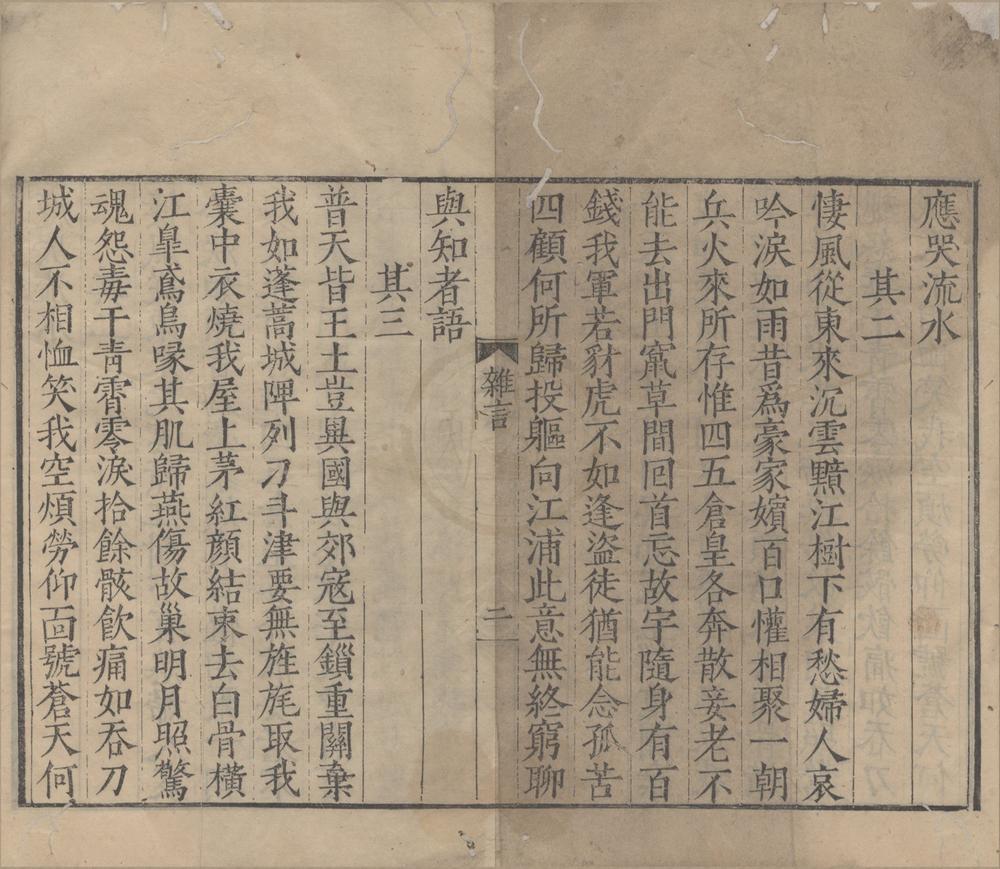 應哭流水
其二
悽風從東來沉雲黯江樹下有愁婦人哀
吟淚如雨昔爲豪家嬪百口懽相聚一朝
兵火來所存惟四五倉皇各奔散妾老不
能去出門竄草間回首忘故宇隨身有百
錢我軍若豺虎不如逢盜徒猶能念孤苦
四顧何所歸投軀向江浦此意無終窮聊
雜言
二
與知者語
其三
普天皆王土豈異國與郊寇至鎖重關棄
我如蓬蒿城陴列刁斗津要無旌旄取我
囊中衣燒我屋上茅紅顏結束去白骨橫
江臯鳶烏啄其肌歸燕傷故巢明月照驚
魂怨毒干靑霄零淚拾餘骸飮痛如吞刀
城人不相恤笑我空煩勞仰面號蒼天何